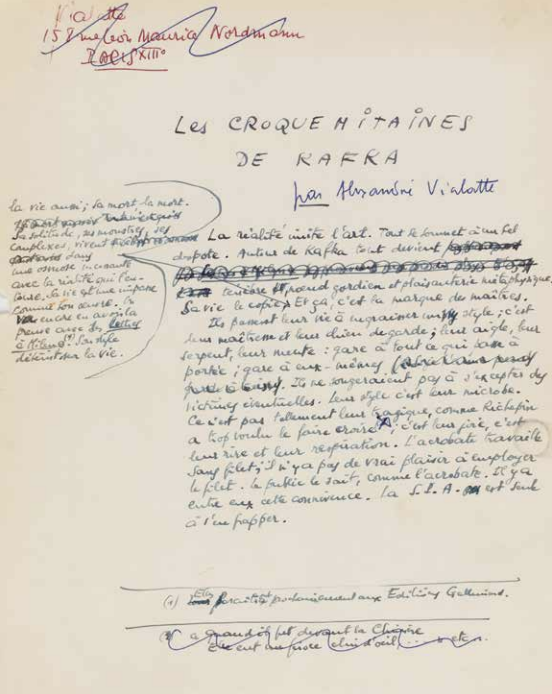 Vialatte
158 rue Léon Maurice Nordmann
PARIS XIII°
Les CROQUEMITAINES
DE KAFKA
par Alexandre Vialatte
la vie aussi ; sa mort la mort.
Sa solitude, ses moustiques, ses
complexes, vivent
dans
une osmose
avec la réalité qui l'en-
toure. Sa vie est une impasse
comme son œuvre.
encore
avec les lettres
à Milena. Son style
déteint sur la vie.
La réalité imite l'art. Tout se soumet à un tel
despote. Autour de Kafka tout devient
ténèbre, nœud gordien et plaisanterie métaphysique.
Sa vie le copie. Et ça, c'est la marque des maîtres.
Ils passent leur vie à engraisser un style ; c'est
leur maîtresse et leur chien de garde ; leur aigle, leur
serpent, leur meute : gare à tout ce qui passe à
portée ; gare à eux-mêmes
Ils ne songeraient pas à s'excepter des
victimes éventuelles. Leur style c'est leur microbe.
Ce n'est pas tellement leur tragique, comme Richepin
a trop voulu le faire croire, c'est leur joie, c'est
leur rire et leur respiration. L'acrobate travaille
sans filet ; il n'y a pas de vrai plaisir à employer
le filet. Le public le sait, comme l'acrobate. Il y a
entre eux cette connivence. La S.P.A. est seule
à s'en frapper.
(1) prochainement aux Editions Gallimard.
devant la
clin d'œil, etc.